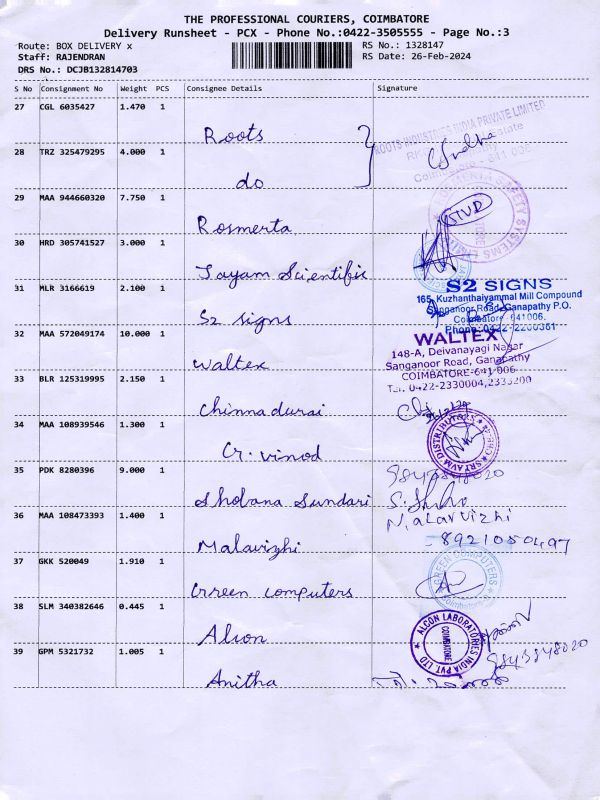 THE PROFESSIONAL COURIERS, COIMBATORE
Delivery Runsheet - PCX - Phone No.:0422-3505555 - Page No.:3
Route: BOX DELIVERY x RS No.: 1328147
Staff: RAJENDRAN RS Date: 26-Feb-2024
DRS No.: DCJB132814703
S No Consignment No Weight PCS Consignee Details Signature
27 CGL 6035427 1.470 1
Roots
ROOTS INDUSTRIES INDIA PRIVATE LIMITED
28 TRZ 325479295 4.000 1
do
29 MAA 944660320 7.750 1
Rosmerta
30 HRD 305741527 3.000 1
Jayam Scientific
31 MLR 3166619 2.100 1
S2 signs
S2 SIGNS
165, Kuzhanthaiyammal Mill Compound
Sanganoor Road, Ganapathy P.O.
Coimbatore 641006.
Phone: 0422-2200361
32 MAA 572049174 10.000 1
Waltex
WALTEX
148-A, Deivanayagi Nagar
Sanganoor Road, Ganapathy
COIMBATORE-641 006
Tel. 0422-2330004,2333200
33 BLR 125319995 2.150 1
Chinnadurai
34 MAA 108939546 1.300 1
Cr. vinod
35 PDK 8280396 9.000 1
Shobana Sundari
36 MAA 108473393 1.400 1
N. alarvizhi
8921050497
Malavizhi
37 GKK 520049 1.910 1
Green computers
GREEN COMPUTERS
Coimbatore
38 SLM 340382646 0.445 1
Alcon
ALCON LABORATORIES INDIA PVT. LTD
COIMBATORE
39 GPM 5321732 1.005 1
9843848020
Anitha